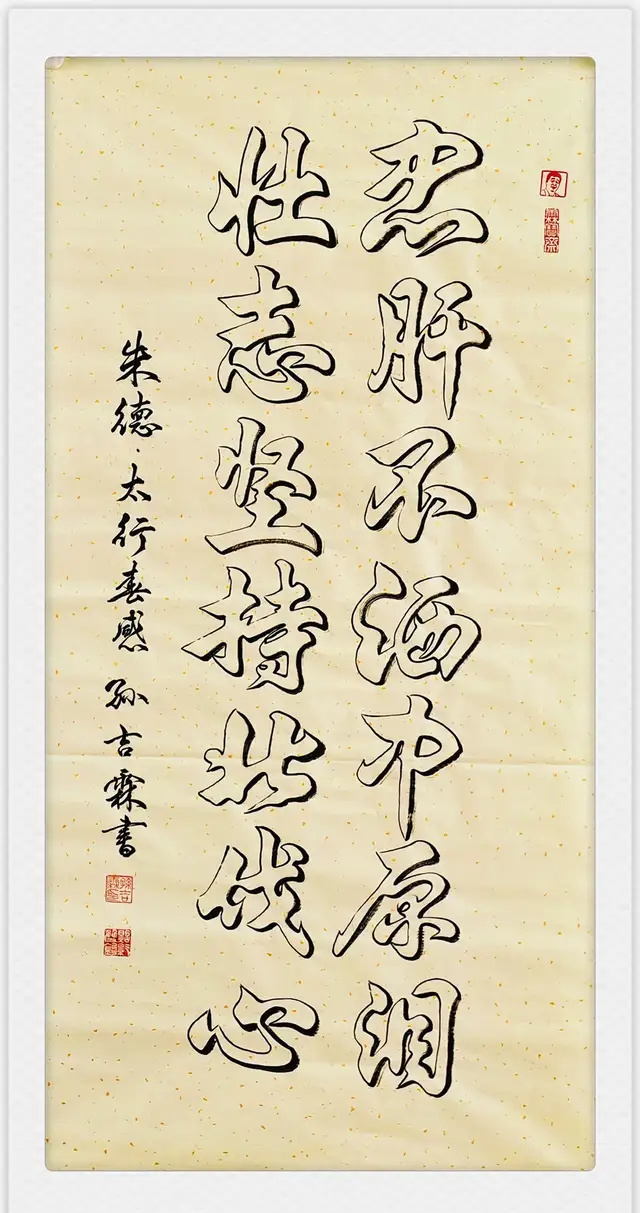 忠肝不洒中原泪
壮志坚持北伐心
朱德·太行春感 孙吉霖书